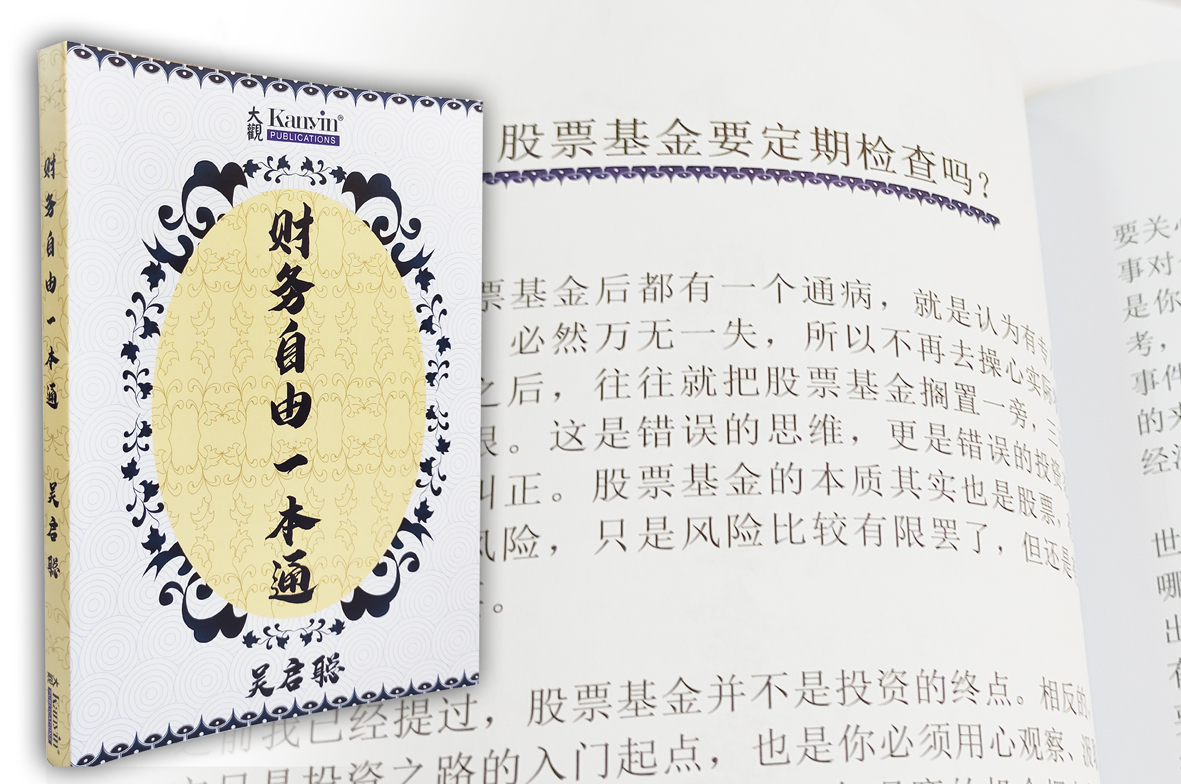 财务自由一本通
吴启聪
大觀 Kanyin
PUBLICATIONS
大觀
Kanyin®
PUBLICATIONS
财务自由一本通
吴启聪
股票基金要定期检查吗？
票基金后都有一个通病，就是认为有专
必然万无一失，所以不再去操心实际
之后，往往就把股票基金搁置一旁，三
。这是错误的思维，更是错误的投资
纠正。股票基金的本质其实也是股票，
风险，只是风险比较有限罢了，但还是
。
前我已经提过，股票基金并不是投资的终点。相反的
只是投资之路的入门起点，也是你必须用心观察、
要关心
事对
是你
考，
事件
的
经济
世
哪
出